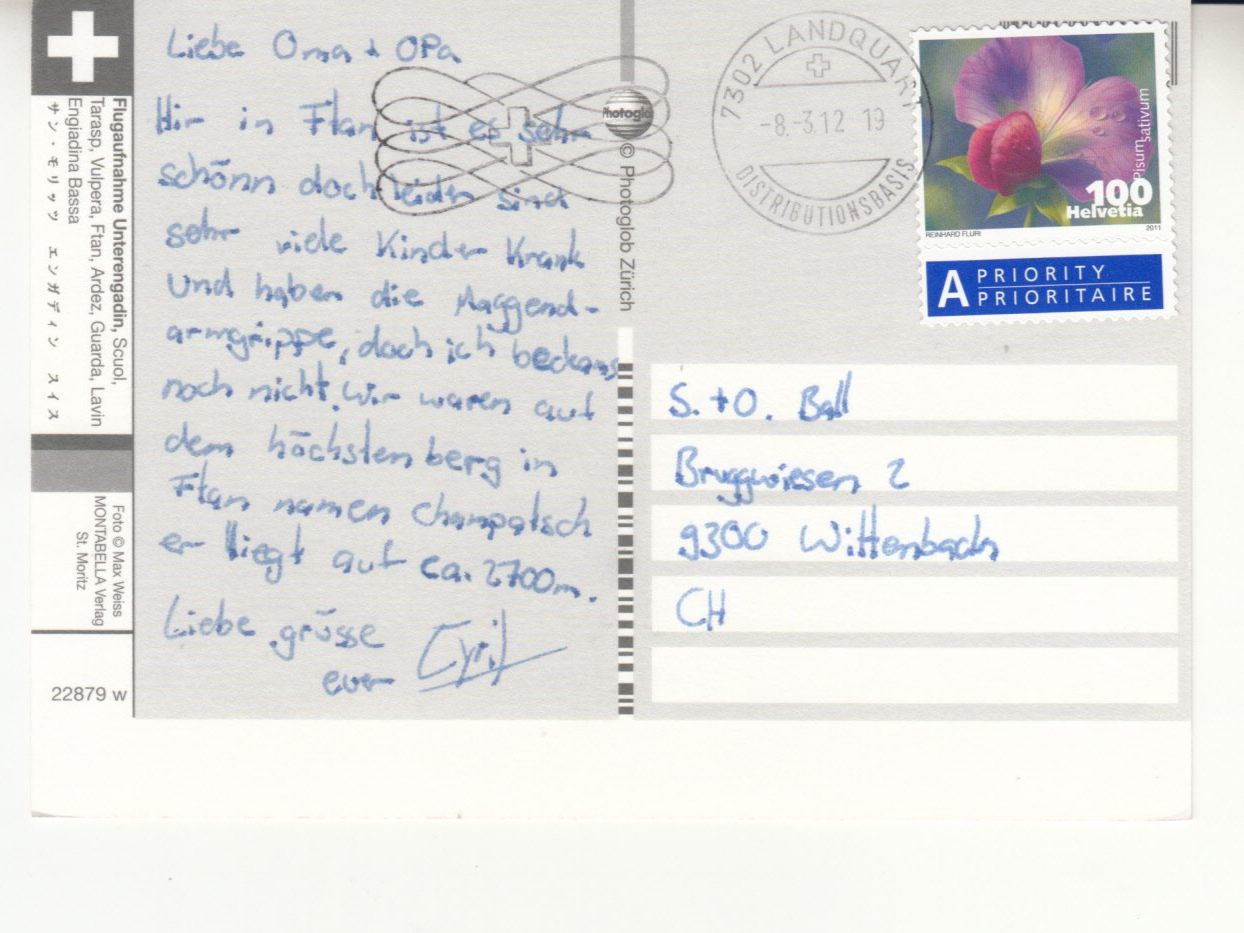 Liebe Oma + OPa
Hir in Ftan ist es sehr
schönn doch leider sind
sehr viele Kinder Krank
Und haben die Maggend-
armgrippe, doch ich beckams
noch nicht. Wir waren auf
dem höchsten berg in
Ftan namen Champatsch
er liegt auf ca. 2700m.
Liebe grüsse
euer Cyril
Flugaufnahme Unterengadin, Scuol,
Tarasp, Vulpera, Ftan, Ardez, Guarda, Lavin
Engiadina Bassa
サン・モリッツ エンガディン スイス
Foto © Max Weiss
MONTABELLA Verlag
St. Moritz
22879 w
Photoglob
© Photoglob Zürich
7302 LANDQUART
-8.-3.12 19
DISTRIBUTIONSBASIS
Pisum sativum
100
Helvetia
REINHARD FLURI
2011
A PRIORITY
PRIORITAIRE
S. + O. Ball
Bruggwiesen 2
9300 Wittenbach
CH